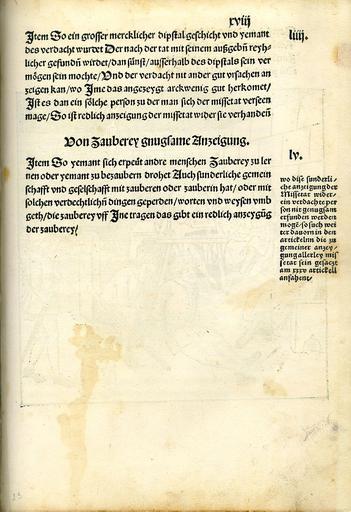 xviij
Item So ein grosser mercklicher dipstal geschicht vnd yemant
des verdacht wurdet Der nach der tat mit seinem außgebñ reyh-
licher gefundñ wirdet/dan sünst/ausserhalb des dipstals sein ver
mögen sein mochte/Vnd der verdacht nit ander gut vrsachen an
zeigen kan/wo Jme das angezeygt arckwenig gut herkomet/
Ist es dan ein sölche person zu der man sich der missetat verseen
mage/So ist redlich anzeigung der missetat wider sie verhandeñ
liiij.
Von Zauberey gnugsame Anzeigung.
Item So yemant sich erpeüt andre menschen Zauberey zu ler
nen oder yemant zu bezaubern drohet Auch sunderliche gemein
schafft vnd geselschafft mit zauberen oder zauberin hat/oder mit
solchen verdechtlichñ dingen geperden/worten vnd weysen vmb
geth/die zauberey vff Jne tragen das gibt ein redlich anzeygũg
der zauberey/
lv.
wo dise sunderli-
che anzeigung der
Missetat wider-
ein verdachte per
son nit gnugsam
erfunden werden
mogẽ/so such wei
ter dauorn in den
artickelnn die zu
gemeiner anzey-
gung allerley mis
setat sein gesaczt
am xxxv artickell
anfahent/